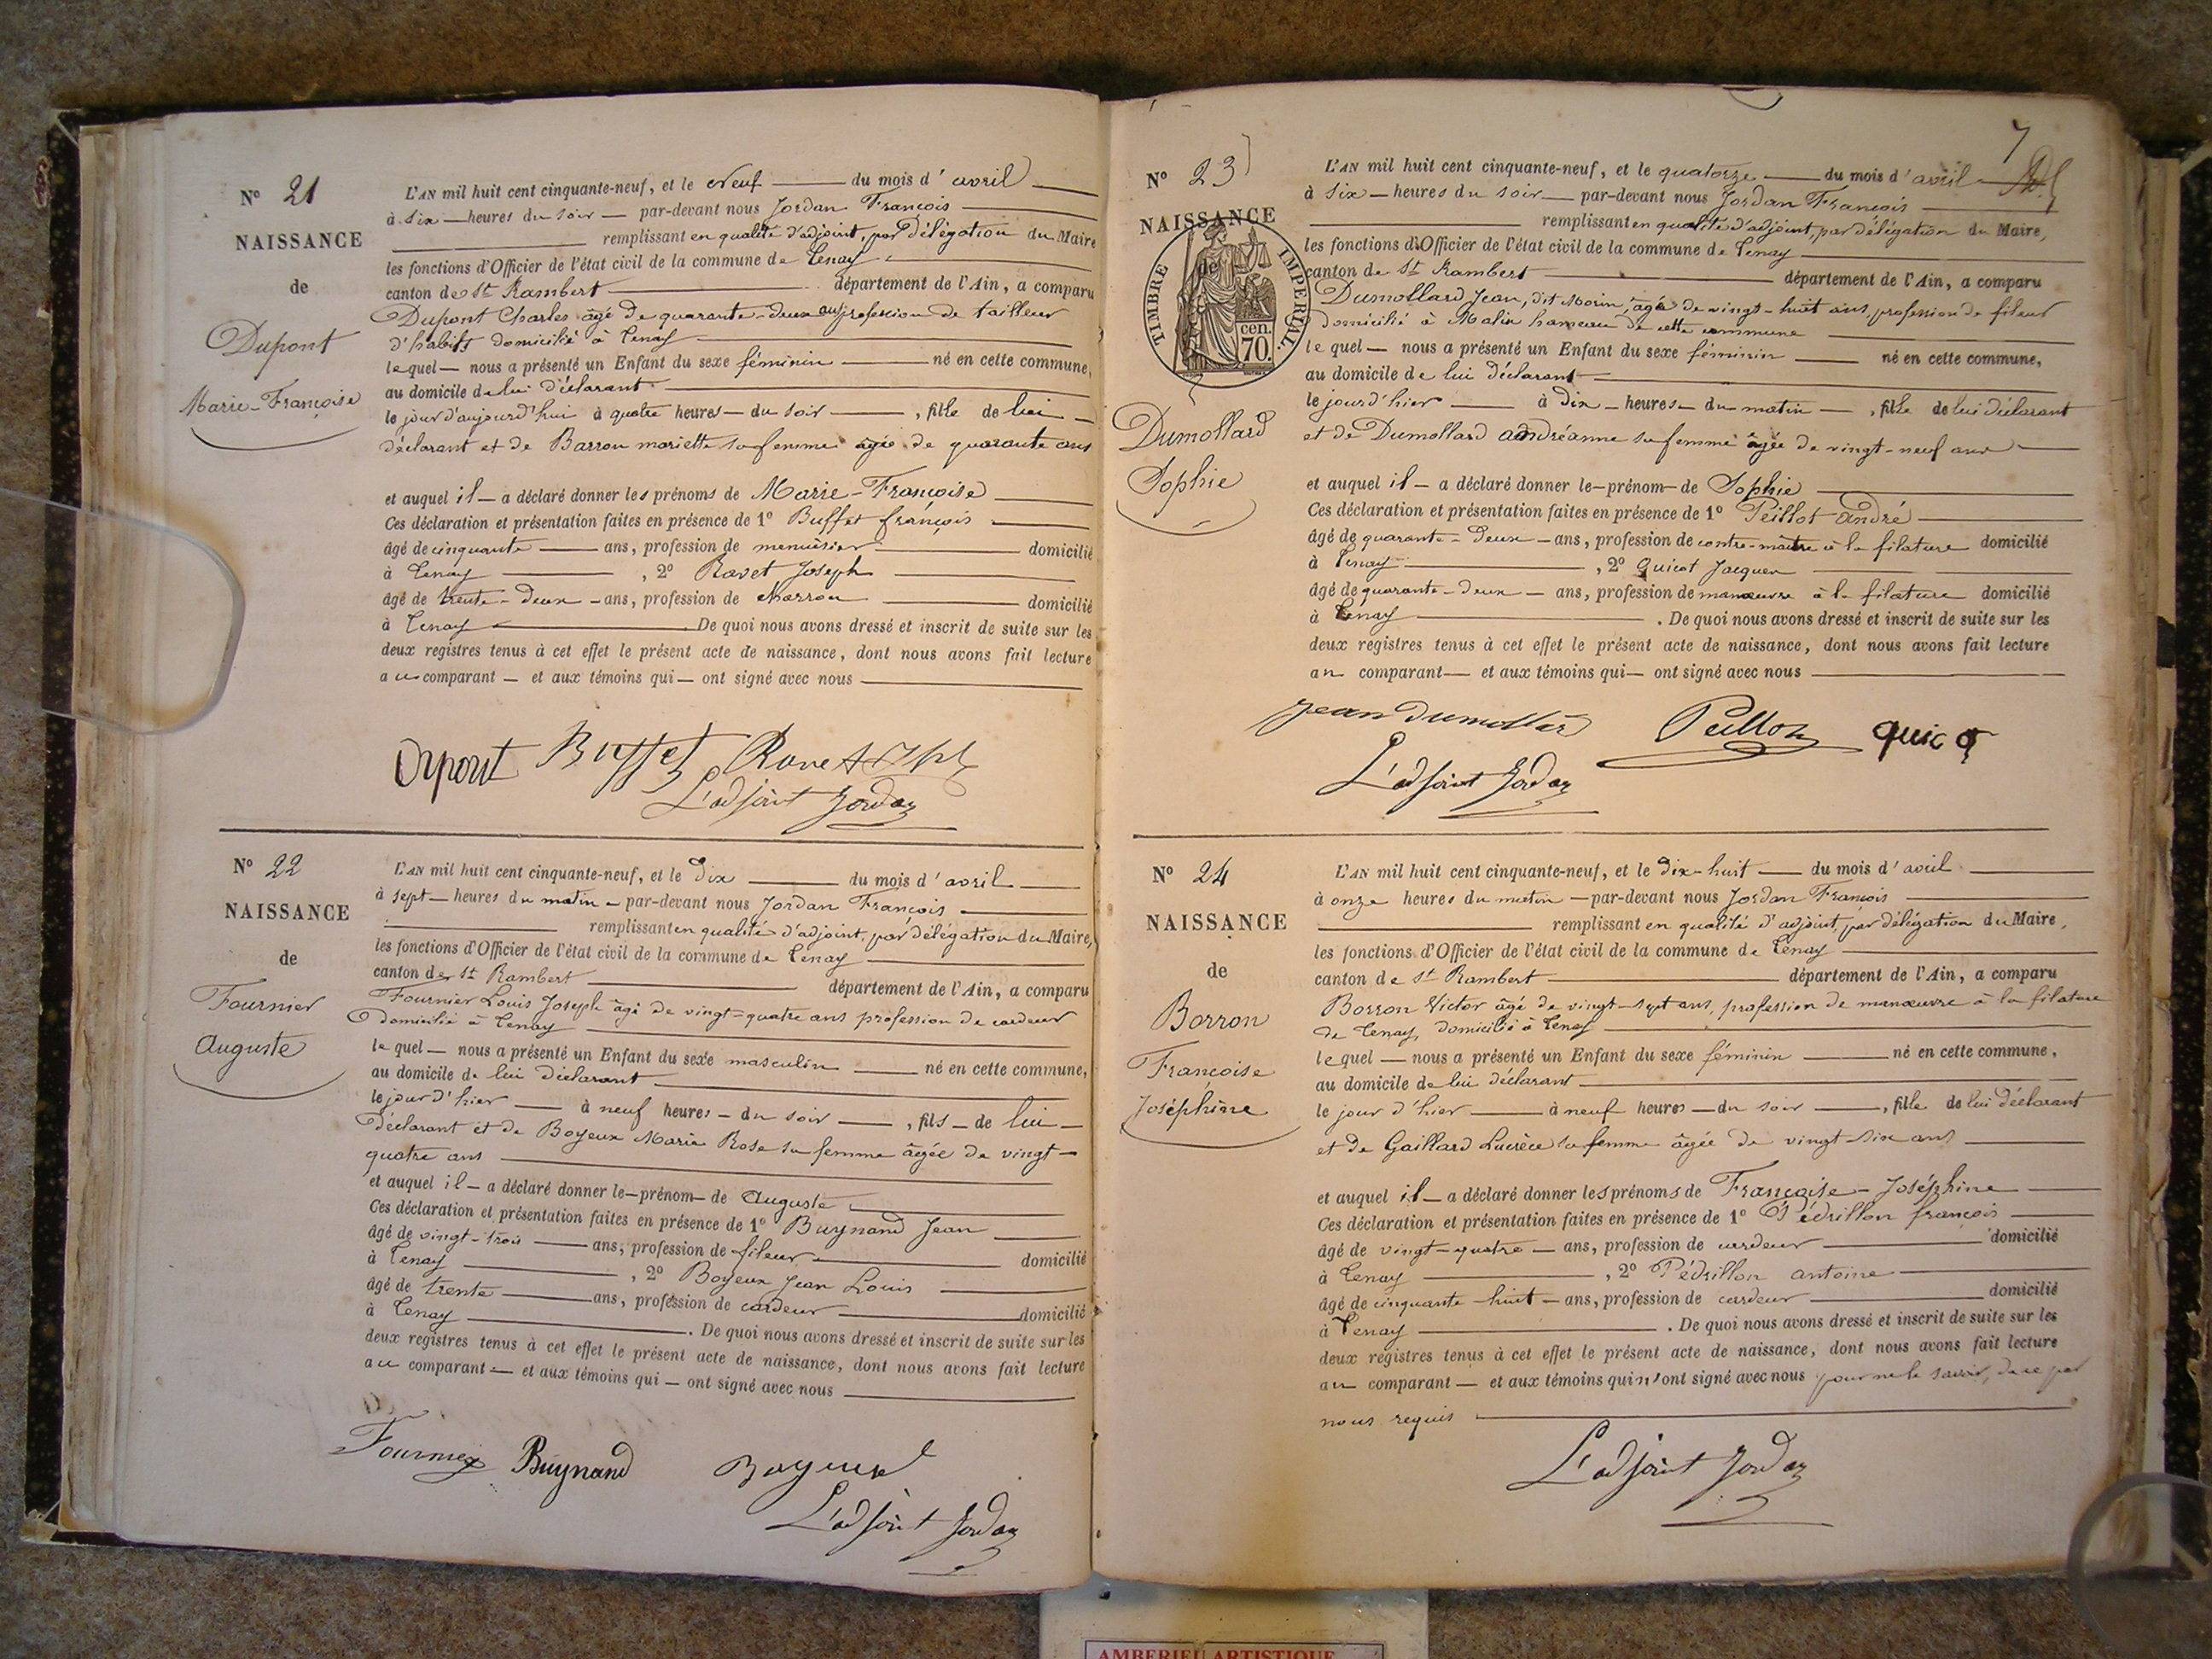 N° 21
NAISSANCE
de
Dupont
Marie-Françoise
L'AN mil huit cent cinquante-neuf, et le neuf du mois d'avril
à six heures du soir par-devant nous Jordan François
remplissant en qualité d'adjoint, par délégation du Maire
les fonctions d'Officier de l'état civil de la commune de Tenay
canton de St Rambert département de l'Ain, a comparu
Dupont Charles âgé de quarante-deux ans profession de tailleur
d'habits domicilié à Tenay
lequel nous a présenté un Enfant du sexe féminin né en cette commune,
au domicile de lui déclarant
le jour d'aujourd'hui à quatre heures du soir, fille de lui
déclarant et de Barron mariette sa femme âgée de quarante ans
et auquel il a déclaré donner les prénoms de Marie-Françoise
Ces déclaration et présentation faites en présence de 1° Buffet françois
âgé de cinquante ans, profession de menuisier domicilié
à Tenay, 2° Ravet Joseph
âgé de trente-deux ans, profession de charron domicilié
à Tenay De quoi nous avons dressé et inscrit de suite sur les
deux registres tenus à cet effet le présent acte de naissance, dont nous avons fait lecture
au comparant et aux témoins qui ont signé avec nous
Dupont Buffet Ravet
L'adjoint Jordan
N° 22
NAISSANCE
de
Fournier
Auguste
L'AN mil huit cent cinquante-neuf, et le dix du mois d'avril
à sept heures du matin par-devant nous Jordan François
remplissant en qualité d'adjoint, par délégation du Maire,
les fonctions d'Officier de l'état civil de la commune de Tenay
canton de St Rambert département de l'Ain, a comparu
Fournier Louis Joseph âgé de vingt-quatre ans profession de cardeur
domicilié à Tenay
lequel nous a présenté un Enfant du sexe masculin né en cette commune,
au domicile de lui déclarant
le jour d'hier à neuf heures du soir, fils de lui
déclarant et de Boyeux Marie Rose sa femme âgée de vingt-
quatre ans
et auquel il a déclaré donner le prénom de Auguste
Ces déclaration et présentation faites en présence de 1° Buynand Jean
âgé de vingt-trois ans, profession de fileur domicilié
à Tenay, 2° Boyeux Jean Louis
âgé de trente ans, profession de cardeur domicilié
à Tenay. De quoi nous avons dressé et inscrit de suite sur les
deux registres tenus à cet effet le présent acte de naissance, dont nous avons fait lecture
au comparant et aux témoins qui ont signé avec nous
Fournier Buynand Boyeux
L'adjoint Jordan
7
N° 23
NAISSANCE
de
TIMBRE IMPERIAL
70 cen.
Dumollard
Sophie
L'AN mil huit cent cinquante-neuf, et le quatorze du mois d'avril
à six heures du soir par-devant nous Jordan François
remplissant en qualité d'adjoint, par délégation du Maire,
les fonctions d'Officier de l'état civil de la commune de Tenay
canton de St Rambert département de l'Ain, a comparu
Dumollard Jean, dit Morin, âgé de vingt-huit ans, profession de fileur
domicilié à Malix hameau de cette commune
lequel nous a présenté un Enfant du sexe féminin né en cette commune,
au domicile de lui déclarant
le jour d'hier à dix heures du matin, fille de lui déclarant
et de Dumollard andréanne sa femme âgée de vingt-neuf ans
et auquel il a déclaré donner le prénom de Sophie
Ces déclaration et présentation faites en présence de 1° Peillot andré
âgé de quarante-deux ans, profession de contre-maître à la filature domicilié
à Tenay, 2° Quicot Jacques
âgé de quarante-deux ans, profession de manœuvre à la filature domicilié
à Tenay. De quoi nous avons dressé et inscrit de suite sur les
deux registres tenus à cet effet le présent acte de naissance, dont nous avons fait lecture
au comparant et aux témoins qui ont signé avec nous
jean dumollar Peillot
L'adjoint Jordan
N° 24
NAISSANCE
de
Borron
Françoise
Joséphine
L'AN mil huit cent cinquante-neuf, et le dix-huit du mois d'avril
à onze heures du matin par-devant nous Jordan François
remplissant en qualité d'adjoint, par délégation du Maire,
les fonctions d'Officier de l'état civil de la commune de Tenay
canton de St Rambert département de l'Ain, a comparu
Borron Victor âgé de vingt-sept ans, profession de manœuvre à la filature
de Tenay, domicilié à Tenay
lequel nous a présenté un Enfant du sexe féminin né en cette commune,
au domicile de lui déclarant
le jour d'hier à neuf heures du soir, fille de lui déclarant
et de Gaillard Lucrèce sa femme âgée de vingt-six ans
et auquel il a déclaré donner les prénoms de Françoise-Joséphine
Ces déclaration et présentation faites en présence de 1° Pédrillon françois
âgé de vingt-quatre ans, profession de cardeur domicilié
à Tenay, 2° Pédrillon antoine
âgé de cinquante huit ans, profession de cardeur domicilié
à Tenay. De quoi nous avons dressé et inscrit de suite sur les
deux registres tenus à cet effet le présent acte de naissance, dont nous avons fait lecture
au comparant et aux témoins qui n'ont signé avec nous pour ne le savoir, de ce par
nous requis
L'adjoint Jordan
AMBERIEU ARTISTIQUE